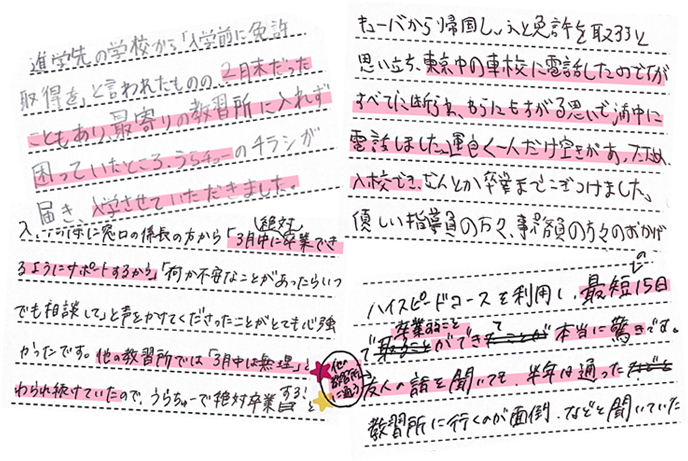 進学先の学校から「入学前に免許
取得を」と言われたものの、2月末だった
こともあり、最寄りの教習所に入れず
困っていたところ、うらチューのチラシが
届き、入学させていただきました。
に窓口の係長の方から「3月中に絶対卒業でき
るようにサポートするから」「何か不安なことがあったらいつ
でも相談して」と声をかけてくださったことがとても心強
かったです。他の教習所では「3月中は無理」と
われ続けていたので、うらちゅーで絶対卒業する！と
キューバから帰国し、ふと免許を取ろうと
思い立ち、東京中の車校に電話したのですが
すべてに断られ、もうにもすがる思いで浦中に
電話しました。運良く一人だけ空きがあったため、
入校でき、なんとか卒業までこぎつけました。
優しい指導員の方々、事務員の方々のおかげ
ハイスピードコースを利用し、最短の15日
で卒業することができて本当に驚きです。
他の教習所に通う友人の話を聞いても、半年は通った
教習所に行くのが面倒、などと聞いていた